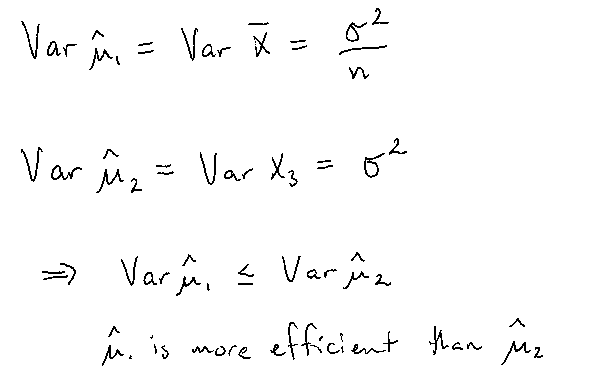 Var μ̂₁ = Var X̄ = σ²/n
Var μ̂₂ = Var X₃ = σ²
⇒ Var μ̂₁ ≤ Var μ̂₂
μ̂₁ is more efficient than μ̂₂